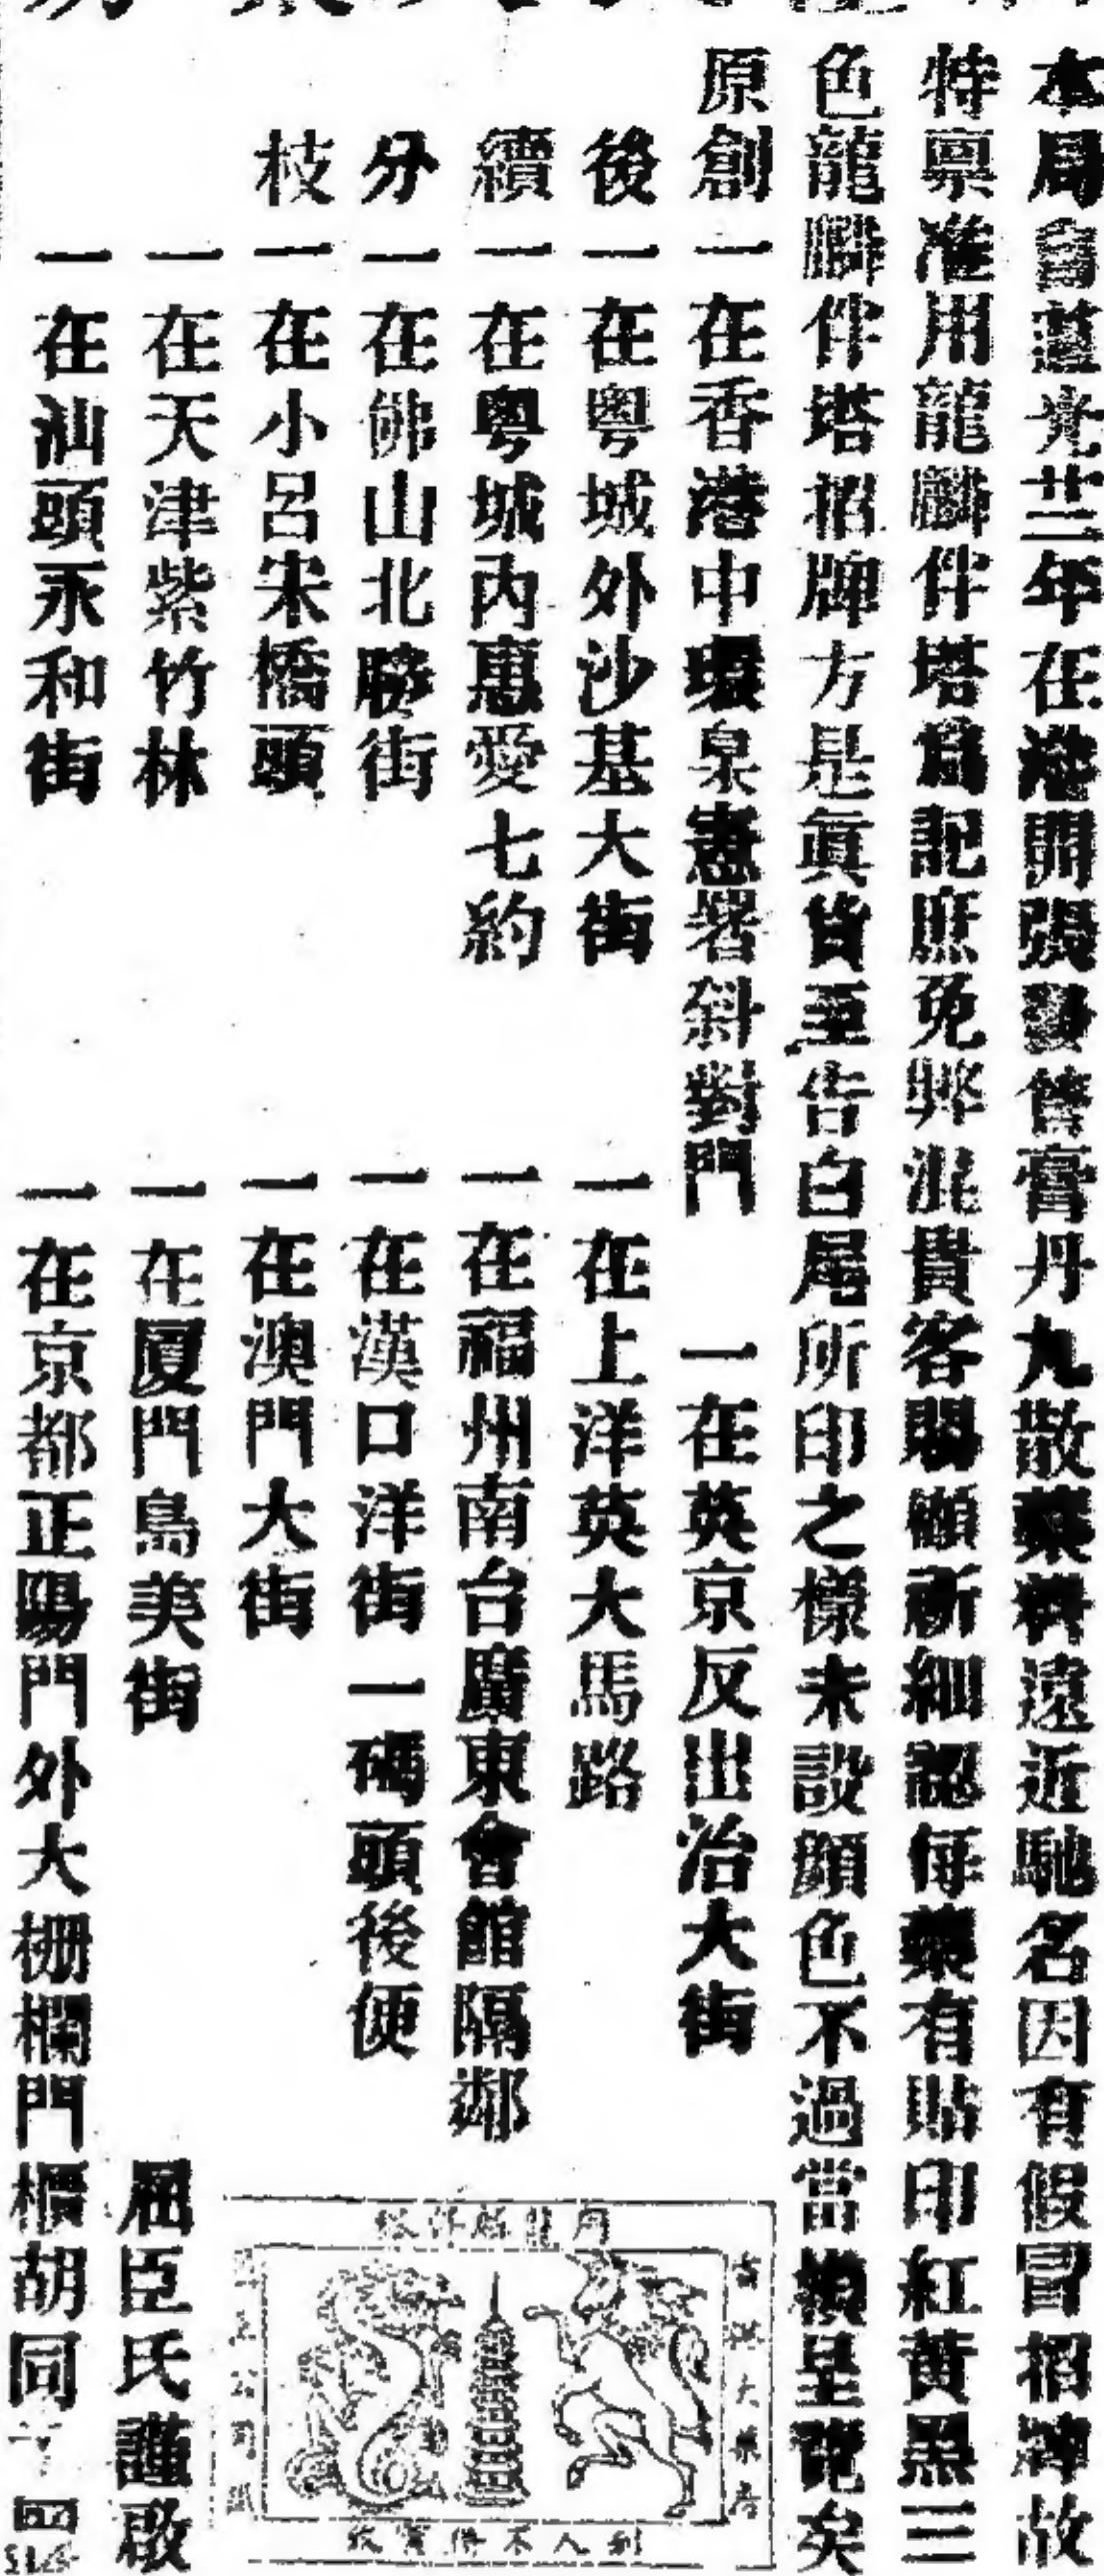 本局自道光廿二年在港開張發售膏丹丸散藥料遠近馳名因有假冒招牌故
特禀准用龍麟伴塔爲記庶免弊混貴客賜顧祈細認每藥有貼印紅黃黑三
色龍麟伴塔招牌方是眞貨至告白尾所印之樣未設顔色不過當模呈電矣
原創一在香港中環臬憲署斜對門 一在英京反出治大街
後一在粤城外沙基大街 一在上洋英大馬路
續一在粤城內惠愛七約 一在福州南台廣東會館隔鄰
分一在佛山北勝街 一在漢口洋街一碼頭後便
枝一在小呂宋橋頭 一在澳門大街
一在天津紫竹林 一在厦門島美街
一在汕頭永和街 一在京都正陽門外大栅欄門框胡同
屈臣氏謹啟
用龍麟伴塔
香港大藥房